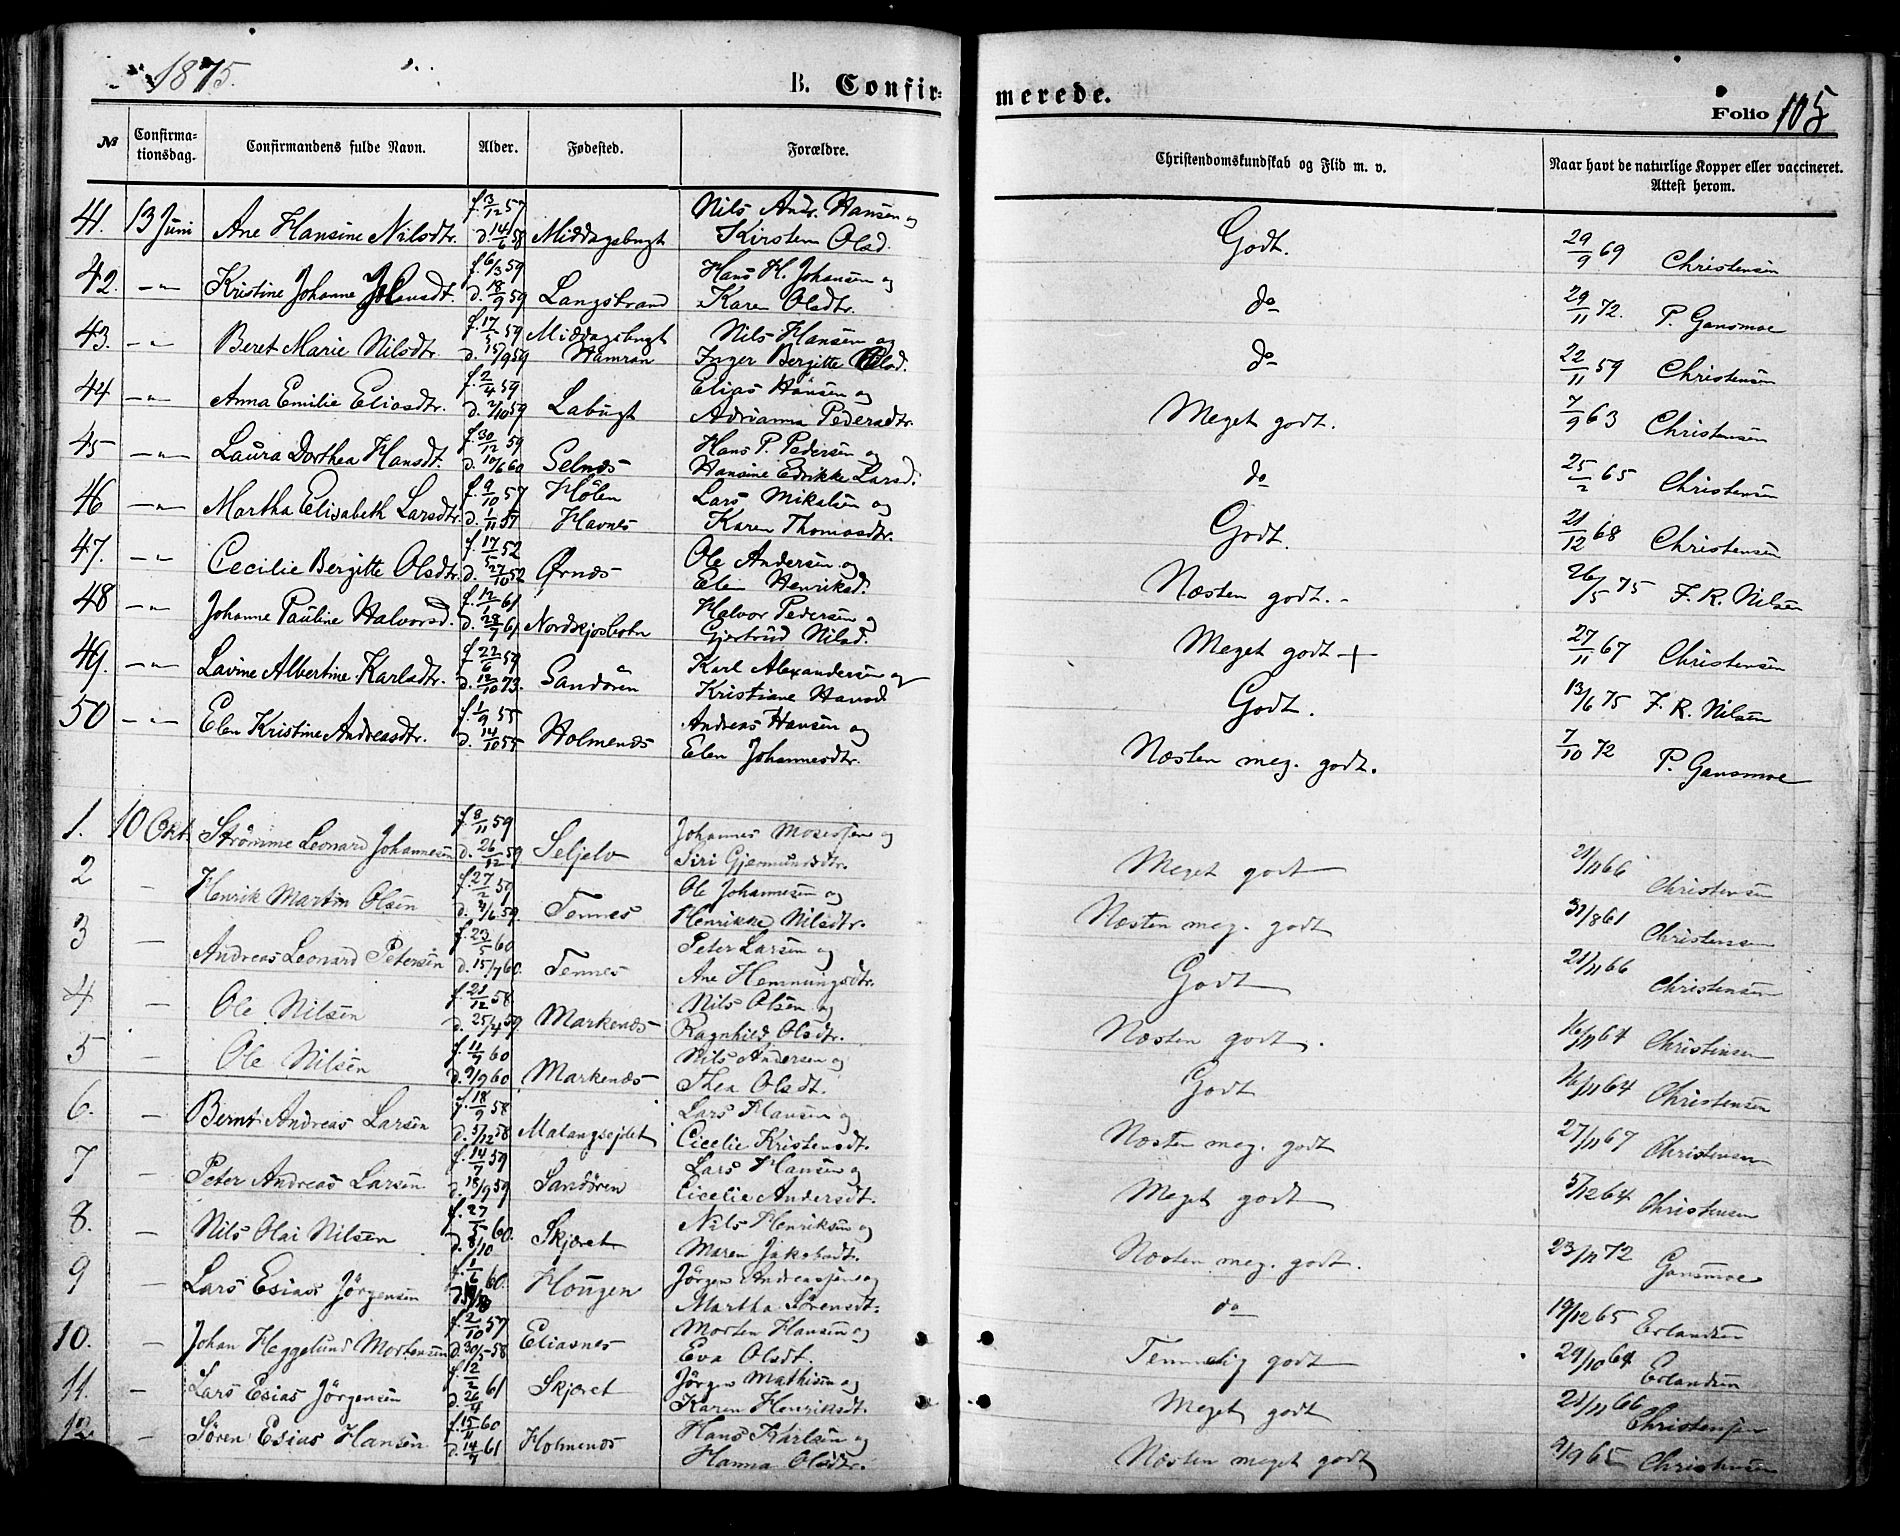 1875.
B. Confirmerede.
Folio 105
№ Confirmationsdag. Confirmandens fulde Navn. Alder. Fødested. Forældre. Christendomskundskab og Flid m. v. Naar havt de naturlige Kopper eller vaccineret. Attest herom.
41. 13 Juni Ane Hansine Nilsdtr. f. 3/12 57 d. 14/6 58 Middagsbugt Nils Andr. Hansen og Kirsten Olsd. Godt. 29/9 69 Christensen
42. -"- Kristine Johanne Hansdt. f. 6/3 59 d. 18/9 59 Langstrand Hans H. Johansen og Karen Olsdtr. do 29/11 72. P. Gansmoe
43. -"- Beret Marie Nilsdtr. f. 17/5 59 d. 15/9 59 Middagsbugt Hamran Nils Hansen og Inger Bergitte Olsd. do 22/11 59 Christensen
44 -"- Anna Emilie Eliasdtr. f. 2/4 59 d. 2/10 59 Labugt Elias Hansen og Adrianna Pedersdtr. Meget godt. 7/9 63 Christensen
45 -"- Laura Dorthea Hansdt. f. 30/12 59 d. 10/6 60 Selnæs Hans P. Pedersen og Hansine Edrikke Larsd. do 25/2 65 Christensen
46 -"- Martha Elisabeth Larsdtr. f. 9/10 57 d. 1/11 57 Hölen Havnes Lars Mikalsen og Karen Thomasdtr. Godt. 21/12 68 Christensen
47. -"- Cecilie Bergitte Olsdtr. f. 17/5 52 d. 27/10 52 Ørnæs Ole Andersen og Elen Henriksd. Næsten godt. 26/5 75 F. R. Nilsen
48 -"- Johanne Pauline Halvorsd. f. 12/1 61 d. 28/7 61 Nordkjosbotn Halvor Pedersen og Gjertrud Nilsd. Meget godt + 27/11 67 Christensen
49. -"- Lavine Albertine Karlsdtr. f. 22/6 59 d. 12/10 73. Sandören Karl Alexandersen og Kristiane Hansd. Godt. 13/6 75 F. R. Nilsen
50 -"- Elen Kristine Andreasdtr. f. 1/9 55 d. 14/10 55 Holmenæs Andreas Hansen og Elen Johannesdtr. Næsten meg. godt. 7/10 72 P. Gansmoe
1. 10 Okt. Strømme Leonard Johannesen f. 8/11 59 d. 26/12 59 Seljelv Johannes Mosessen og Siri Gjermundsdtr. Meget godt 21/11 66 Christensen
2 - Henrik Martin Olsen f. 27/2 59 d. 4/6 59. Tennes Ole Johannesen og Henrikke Nilsdtr. Næsten meg. godt 31/8 61 Christensen
3 - Andreas Leonard Petersen f. 23/5 60 d. 15/7 60. Tennes Peter Larsen og Ane Hemmingsdtr. Godt 21/11 66 Christensen
4 - Ole Nilsen f. 21/12 58 d. 25/4 59 Markenæs Nils Olsen og Ragnhild Olsdtr. Næsten godt. 16/11 64 Christensen
5 - Ole Nilsen f. 11/7 60 d. 9/9 60 Markenæs Nils Andersen og Thea Olsdt. Godt 16/11 64 Christensen
6. - Bernt Andreas Larsen f. 18/9 58 d. 5/12 58 Malangsejdet Lars Hansen og Cicelie Kristensdt. Næsten meg. godt 27/11 67 Christensen
7 - Peter Andreas Larsen f. 14/7 59 d. 18/9 59 Sandören Lars Hansen og Cicelie Andersdt. Meget godt 5/12 64 Christensen
8. - Nils Olai Nilsen f. 27/5 60. d. 8/10 Skjæret Nils Henriksen og Maren Jakobsdt. Næsten meg. godt. 23/11 72 Gansmoe
9 - Lars Esias Jörgensen f. 1/6 60. Hougen Jörgen Andreassen og Martha Sörensdt. do 19/12 65 Erlandsen
10. - Johan Heggelund Mortensen f. 2/10 57 d. 30/5 58 Eliasnes Morten Hansen og Eva Olsdt. Temmelig godt 29/10 64 Erlandsen
11. - Lars Esias Jörgensen f. 12/2 61 d. 26/4 Skjæret Jörgen Mathisen og Karen Henriksdt. Meget godt 21/11 66 Christensen
12 - Sören Esias Hansen f. 15/11 60 d. 14/7 61 Holmenæs Hans Karlsen og Hanna Olsdtr. Næsten meget godt 9/9 65 Christensen